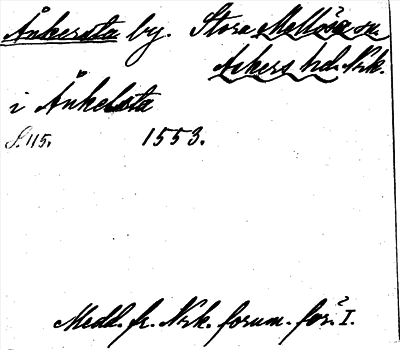 Ånkersta by. Stora Mellösa sn.
Askers hd. Nrk.
i Ånkelsta
S. 115. 1553.
Medd. fr. Nrk. fornm. för. I.